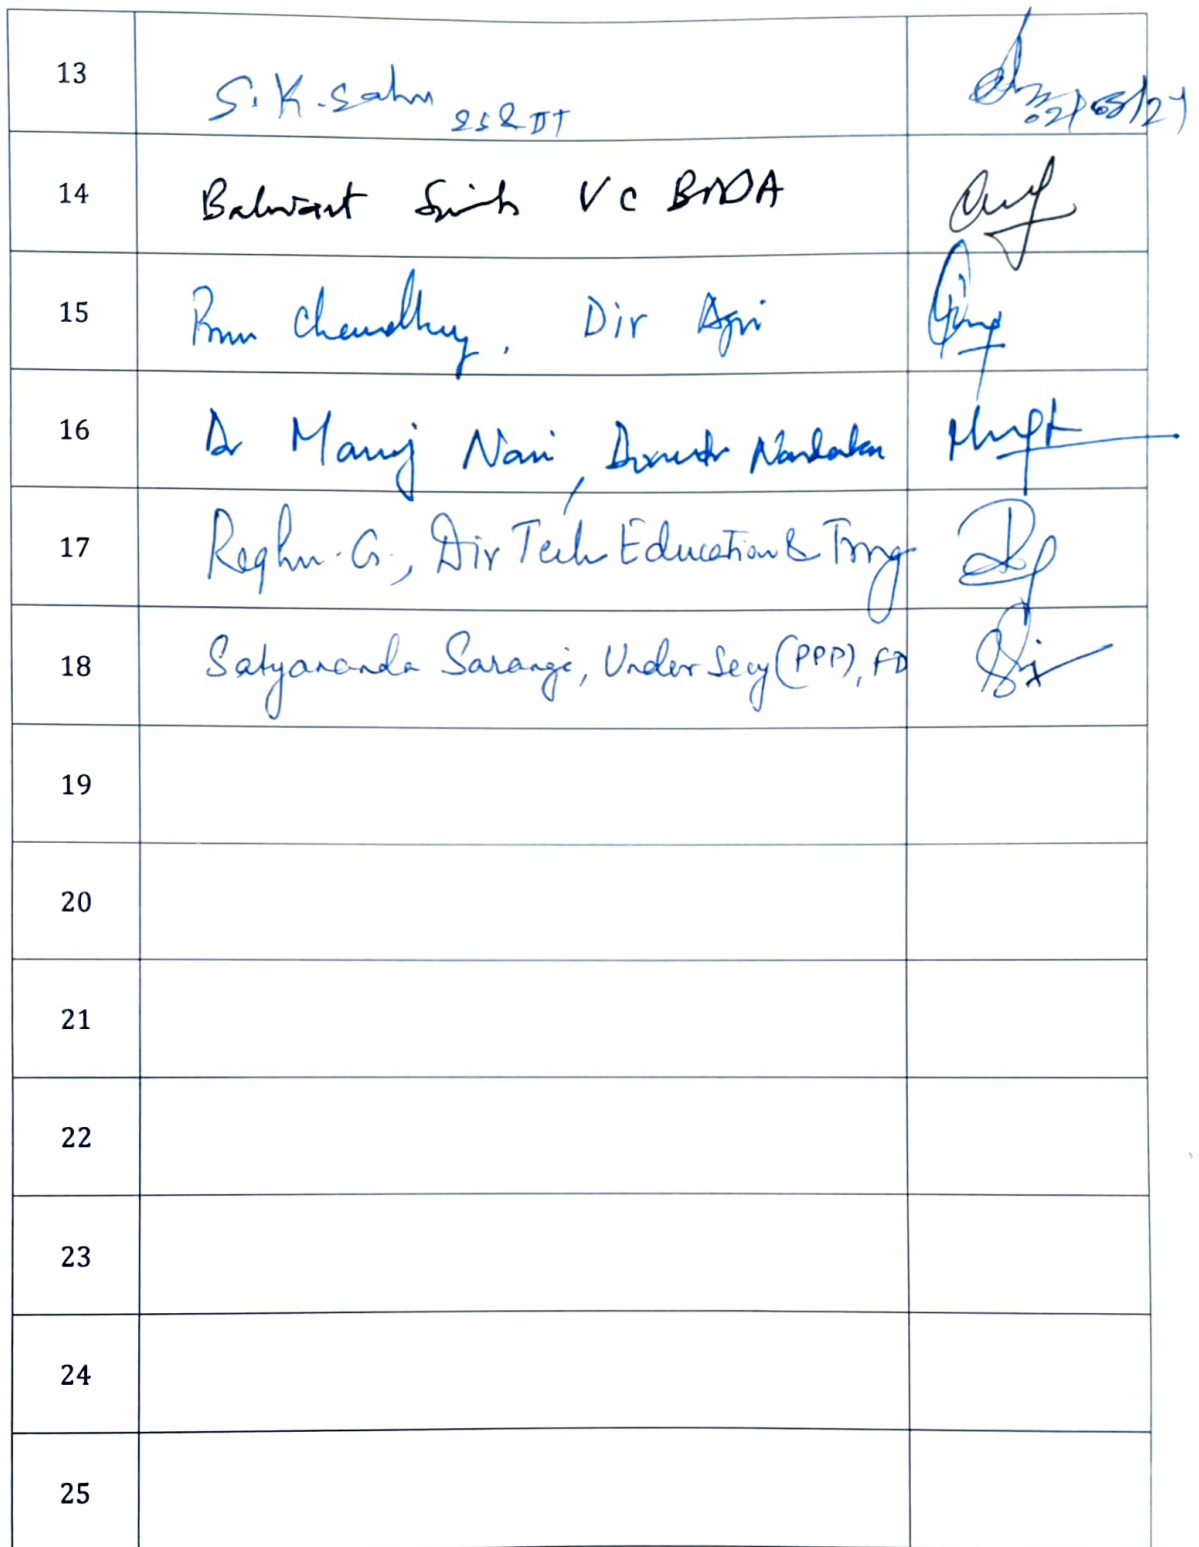 13 S.K. Sahu
14 Balwant Singh VC BMDA
15 Chowdhury, Dir Agri
16 Dr Manoj Nair, Director Nandankanan
17 Raghu. G., Dir Tech Education & Trng
18 Satyananda Sarangi, Under Secy (PPP), FD
19
20
21
22
23
24
25